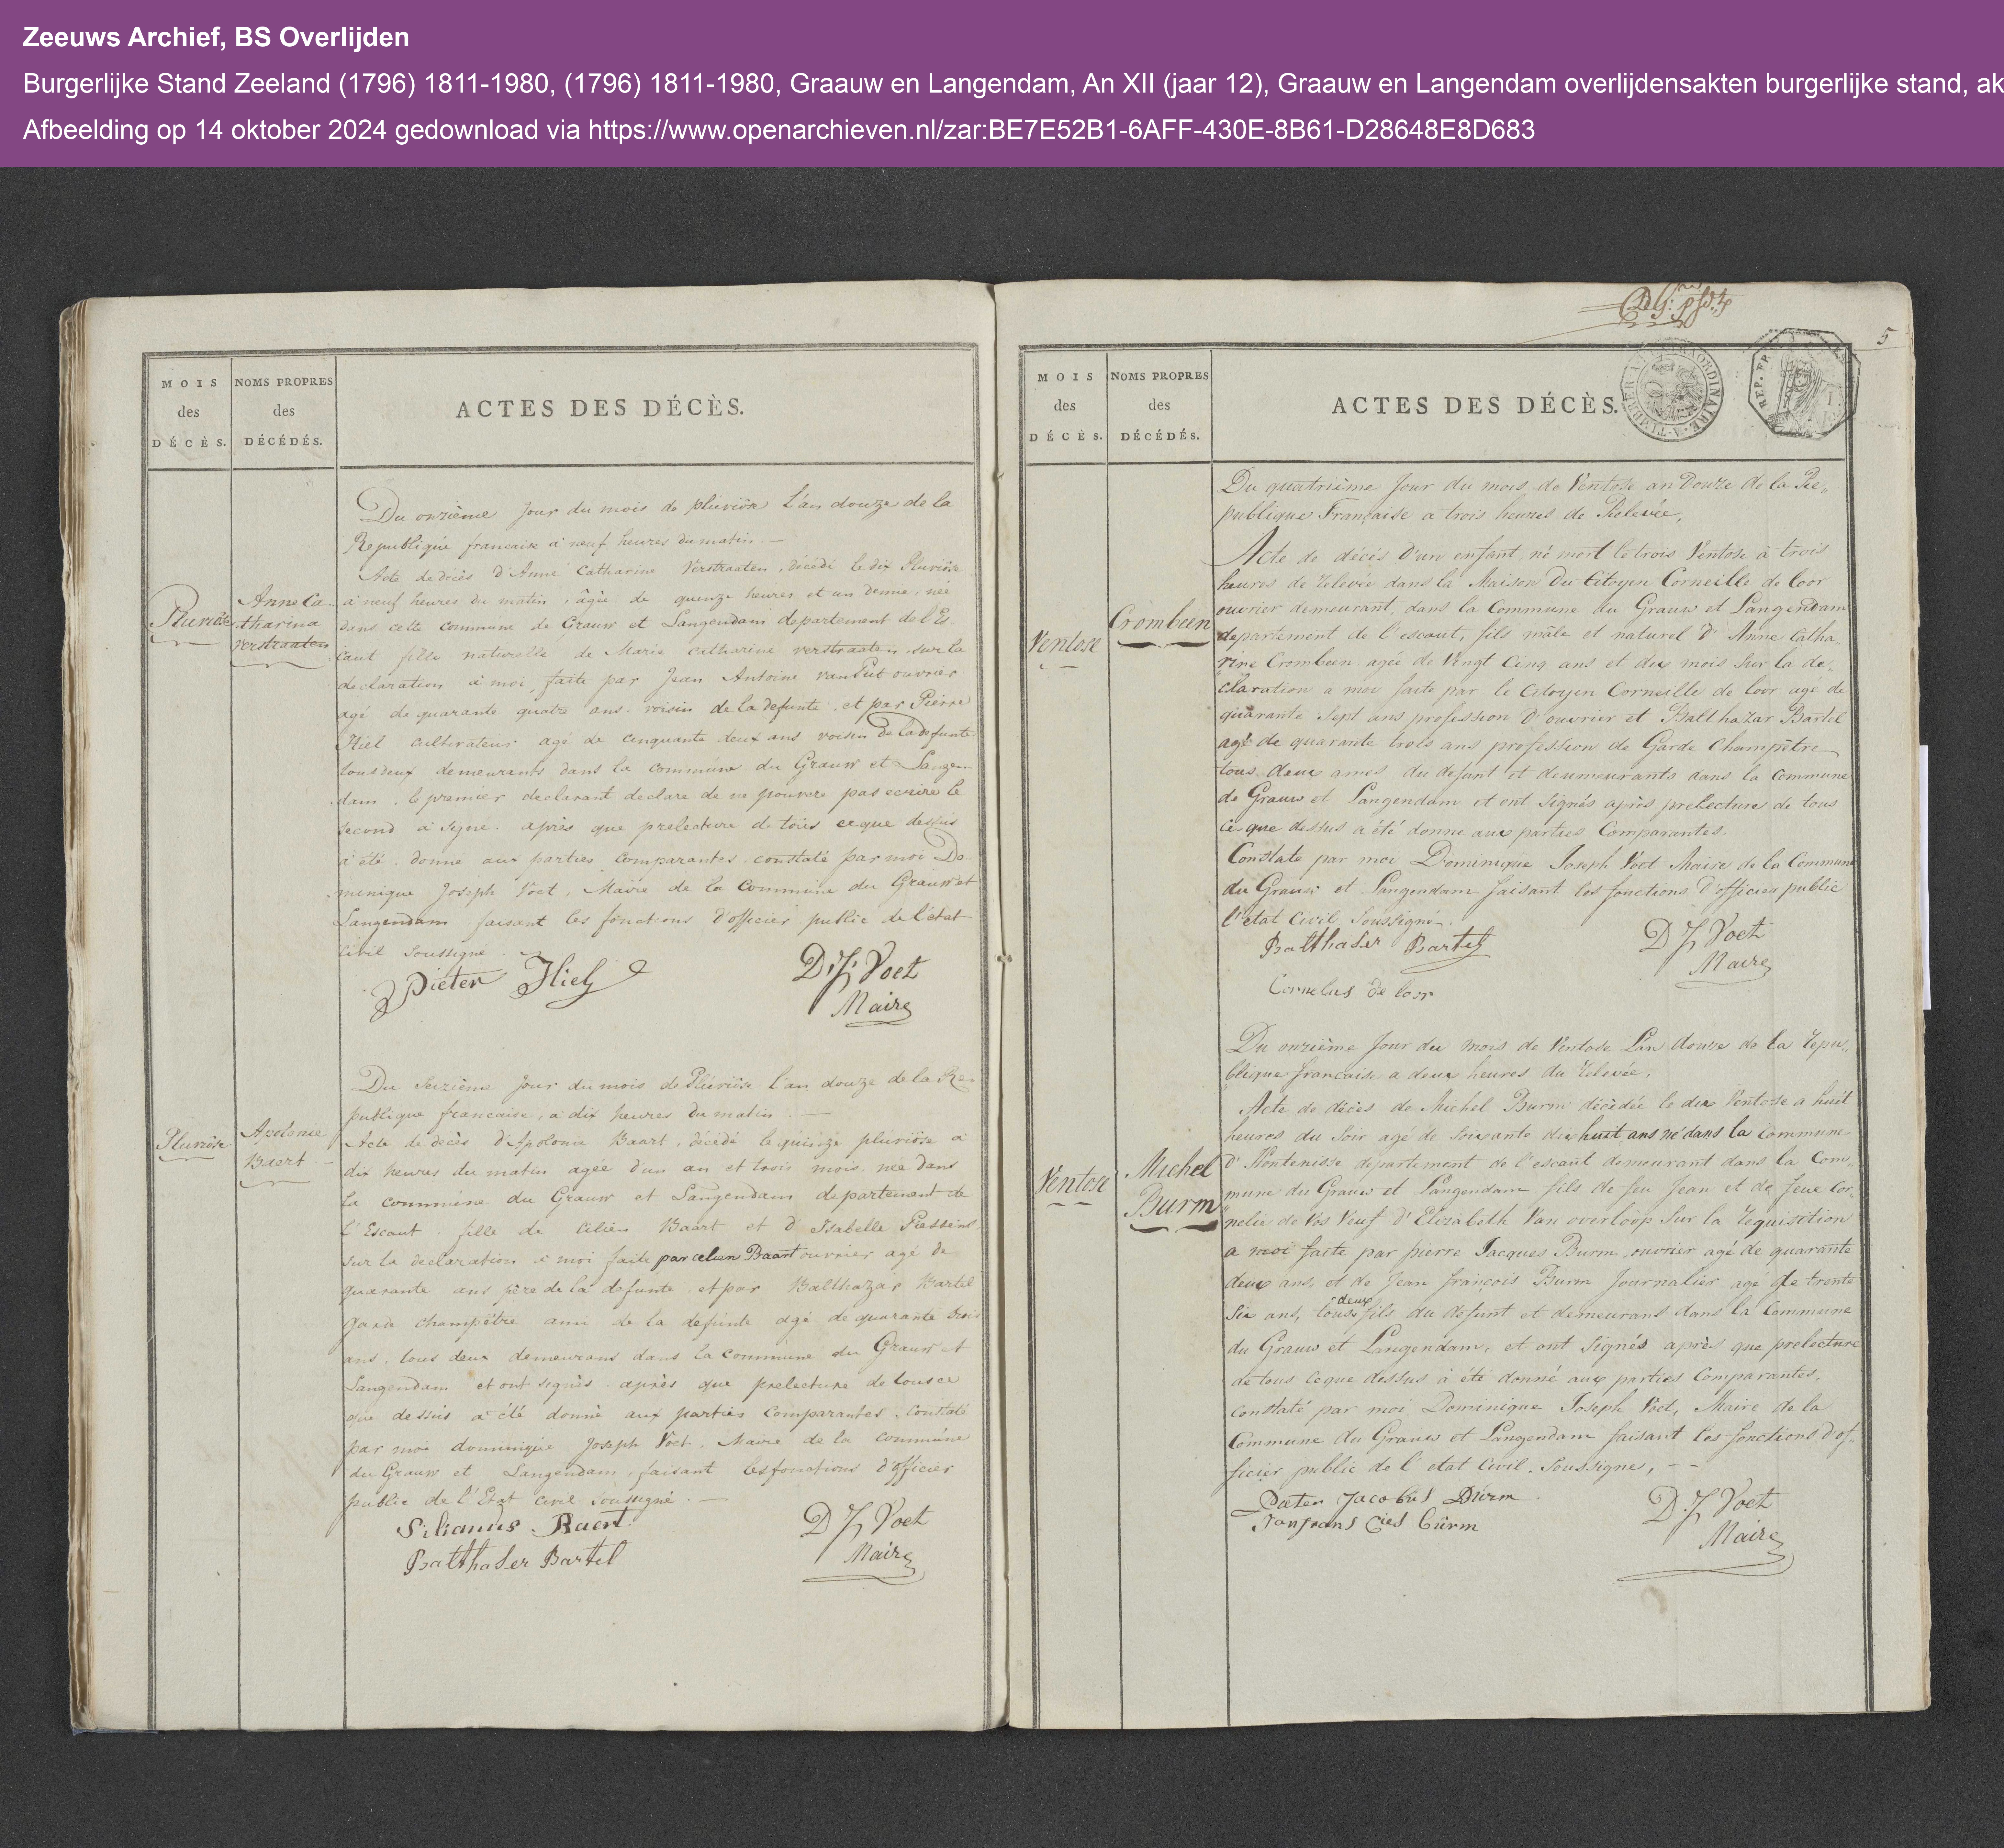 Zeeuws Archief, BS Overlijden
Burgerlijke Stand Zeeland (1796) 1811-1980, (1796) 1811-1980, Graauw en Langendam, An XII (jaar 12), Graauw en Langendam overlijdensakten burgerlijke stand, ak
Afbeelding op 14 oktober 2024 gedownload via https://www.openarchieven.nl/zar:BE7E52B1-6AFF-430E-8B61-D28648E8D683
MOIS
des
DÉCÈS.
NOMS PROPRES
des
DÉCÉDÉS.
ACTES DES DÉCÈS.
Du onzième jour du mois de pluviôse L'an douze de la
Republique francaise à neuf heures du matin. —
Acte de décès d'Anne Catharine Verstraaten, décédé le dix Pluviôse
à neuf heures du matin, âgée de quenze heures et un demie, née
dans cette commune de Grauw et Langendam departement de l'Es
caut fille naturelle de Marie Catharine verstraaten, sur la
declaration à moi faite par Jean Antoine van Put ouvrier
agé de quarante quatre ans. voisin de la defunte, et par Pierre
Hiel cultivateur agé de cinquante deux ans voisin de la defunte
tous deux demeurants dans la commune du Grauw et Langen-
dam. le premier declarant declare de ne pouvere pas ecrire le
second à signe. après que prelecture de tous ce que dessus
à été. donné aux parties Comparantes. constaté par moi Do-
minique Joseph Voet, Maire de la Commune du Grauw et
Langendam faisant les fonctions d'officier public de l'état
Civil soussigné.
Pieter Hiel
D. J. Voet
Maire
Pluviôse
Anne Ca-
tharina
verstraaten
Du Seizième jour du mois de Pluviôse l'an douze de la Re-
publique francaise, à dix heures du matin. —
Acte de decès d'Apolonie Baart, décédé le quinze pluviôse à
dix heures du matin agée d'un an et trois mois, née dans
la commune du Grauw et Langendam departement de
l'Escaut. fille de Cilien Baart et d'Isabelle Piessens
sur la declaration à moi faite par celien Baart ouvrier agé de
quarante ans père de la defunte, et par Balthazar Bartel
garde champêtre ami de la defunte agé de quarante trois
ans. tous deux demeurans dans la commune du Grauw et
Langendam et ont signés. après que prelecture de tous ce
que dessus a été donné aux parties Comparantes. Constaté
par moi dominique Joseph Voet, Maire de la commune
du Grauw et Langendam, faisant les fonctions d'officier
public de l'Etat Civil Soussigné. —
Silianus Baert.
Balthaser Bartel
D J Voet
Maire
Pluviôse
Apolonie
Baert
5
REP. FR
MOIS
des
DÉCÈS.
NOMS PROPRES
des
DÉCÉDÉS.
ACTES DES DÉCÈS.
Du quatrième Jour du mois de Ventose an Douze de la Re-
publique Française a trois heures de Relevée,
Acte de décès d'un enfant, né mort le trois Ventose à trois
heures de relevée dans la Maison Du Citoyen Corneille de loor
ouvrier demeurant, dans la Commune du Grauw et Langendam
departement de l'escaut, fils mâle et naturel d'Anne Catha-
rine Crombeen agée de Vingt Cinq ans et dix mois sur la de-
claration a moi faite par le Citoyen Corneille de loor age de
quarante Sept ans profession d'ouvrier et Balthazar Bartel
agé de quarante trois ans profession de Garde Champêtre
tous deux ames du defunt et deumeurants dans la Commune
de Grauw et Langendam et ont signés après prelecture de tous
ce que dessus a été donne aux parties Comparantes.
Constate par moi Dominique Joseph Voet Maire de la Commune
du Grauw et Langendam faisant les fonctions d'officier public
l'etat Civil Soussigné.
Balthaser Bartel
Cornelus de loor
D J Voet
Maire
Ventose
Crombeen
Du onzième Jour du mois de Ventose L'an douze de la repu-
blique française a deux heures du relevée,
Acte de décès de Michel Burm décédée le dix Ventose a huit
heures du Soir agé de Soixante dix huit ans né dans la Commune
d'Hontenisse departement de l'escaut demeurant dans la Com-
mune du Grauw et Langendam fils de feu Jean et de feue Cor-
nelie de Vos Veuf d'Elisabeth Van overloop Sur la requisition
a moi faite par pierre Jacques Burm, ouvrier agé de quarante
deux ans, et de Jean françois Burm Journalier age de trente
Six ans, tous deux fils du defunt et demeurans dans la Commune
du Grauw et Langendam, et ont Signés après que prelecture
de tous ce que dessus à été donné aux parties Comparantes,
constaté par moi Dominique Joseph Voet, Maire de la
Commune du Grauw et Langendam faisant les fonctions d'of-
ficier public de l'etat Civil. Soussigne, - -
Pieter Jacobus Burm
Janfrans Cies burm
D J Voet
Maire
Ventose
Michel
Burm